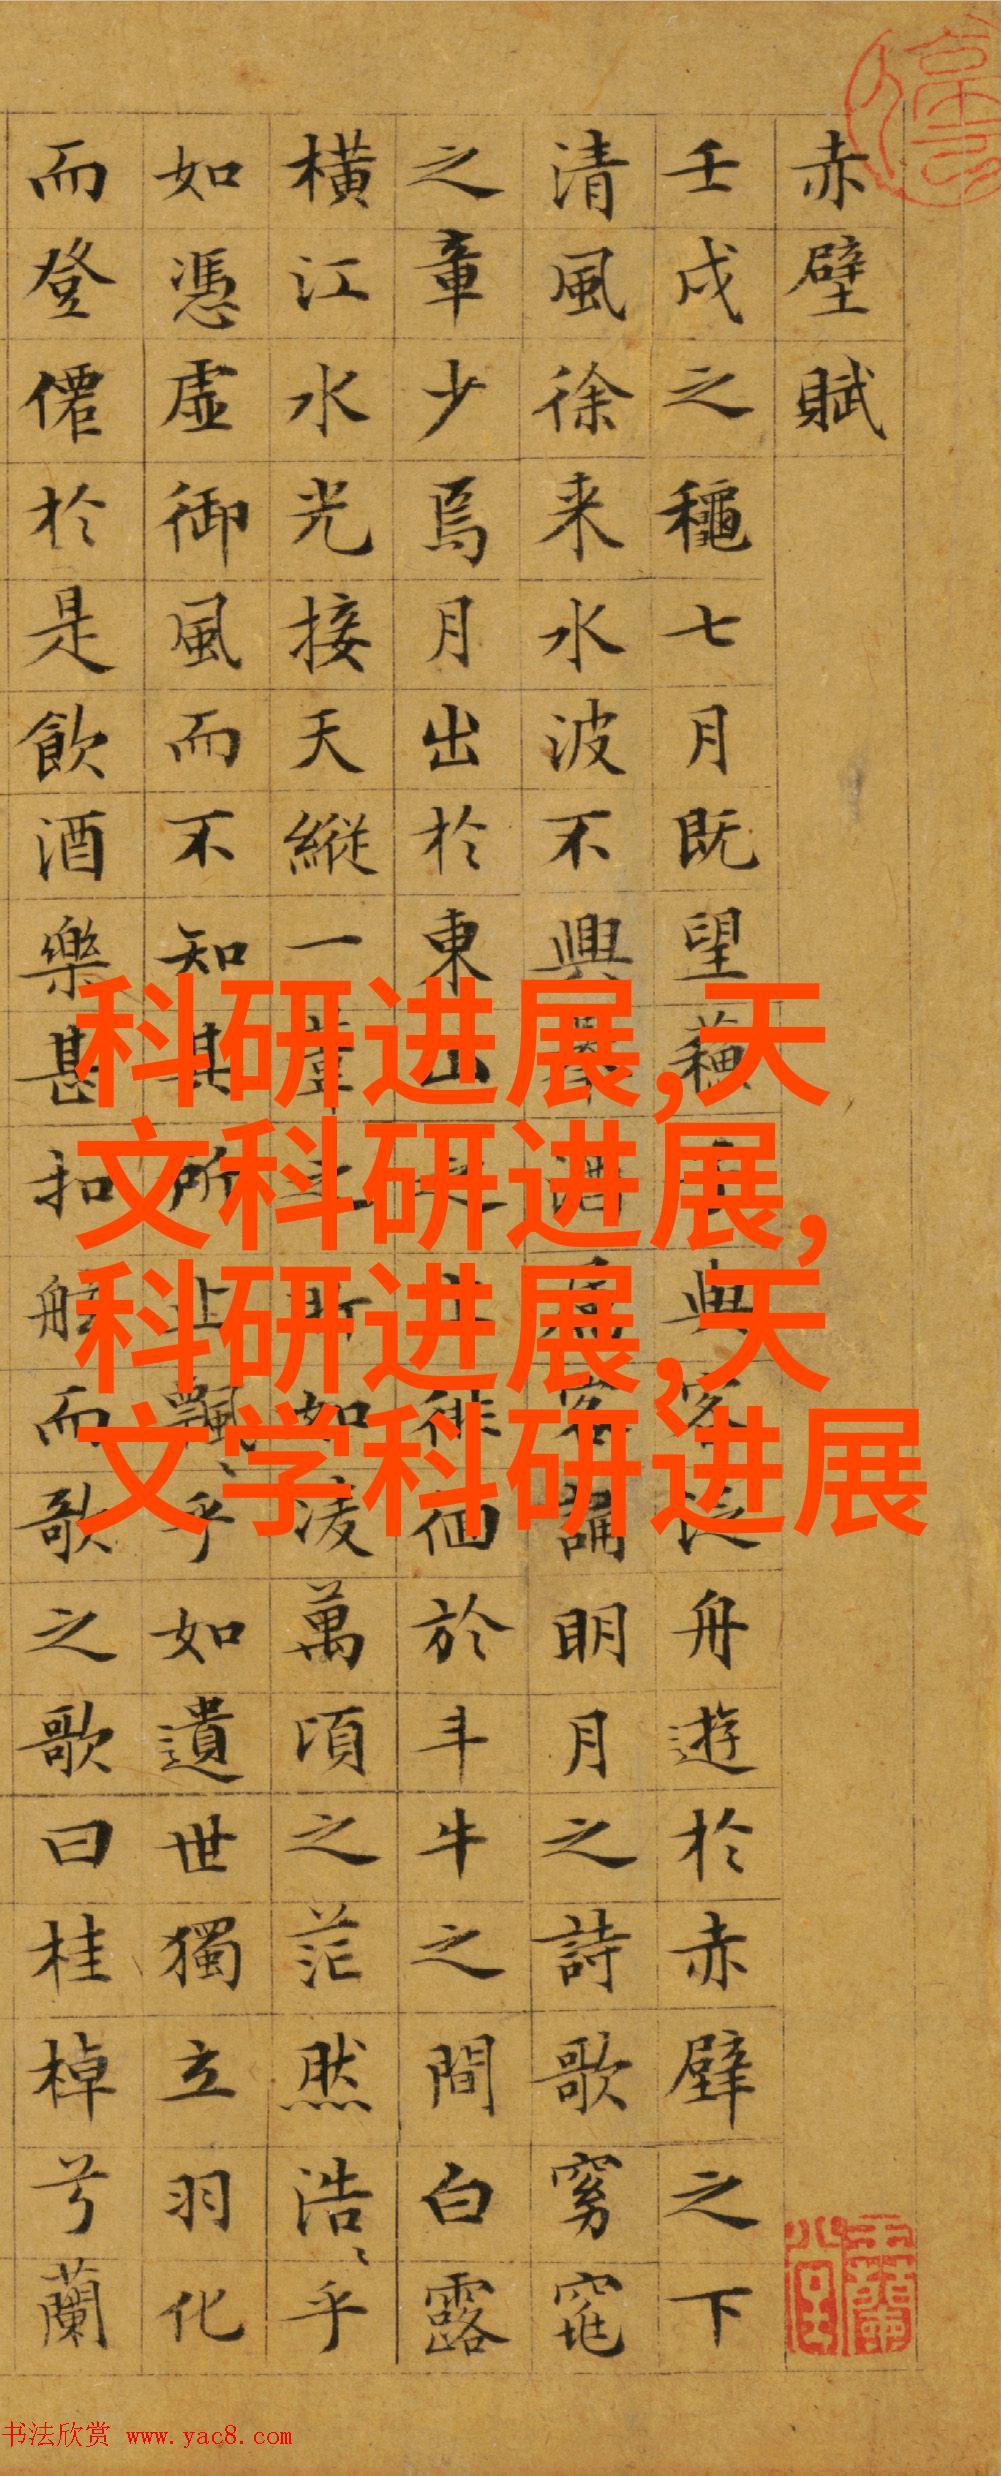 赤壁賦
壬戌之龝七月既望蘓與客泛舟遊於赤壁之下
清風徐来水波不興舉酒属客誦明月之詩歌窈窕
之章少焉月出於東山之上徘徊於斗牛之間白露
橫江水光接天縱一葦之所如凌萬頃之茫然浩〻乎
如憑虛御風而不知其所止飄〻乎如遺世獨立羽化
而登僊於是飲酒樂甚扣舷而歌之歌曰桂棹兮蘭
科研进展,天
文科研进展,
科研进展,天
文学科研进展
书法欣赏 www.yac8.com